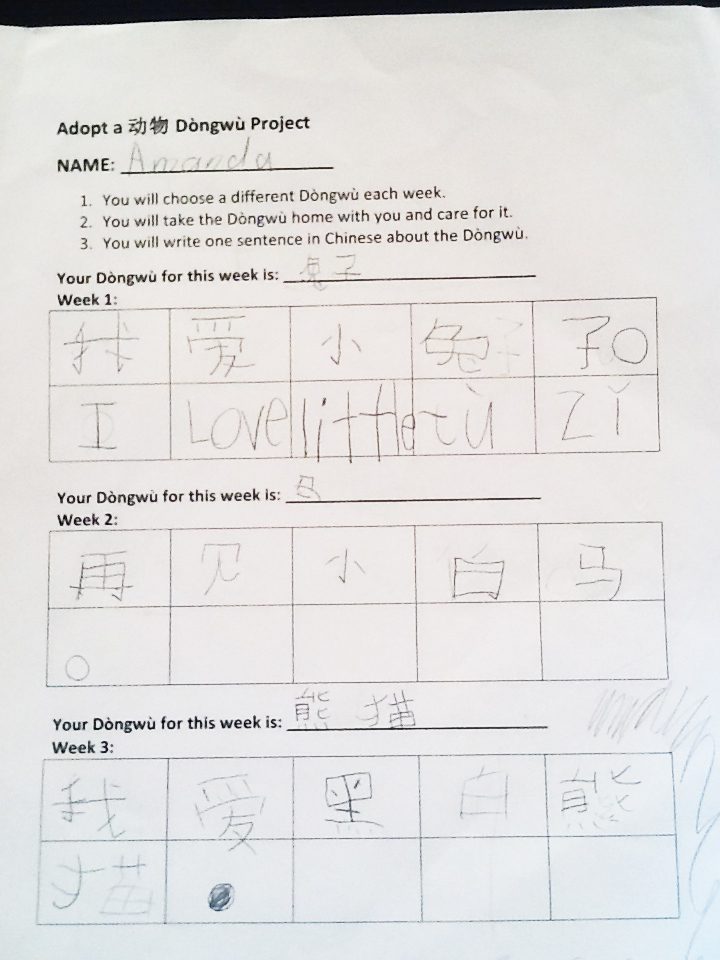 Adopt a 动物 Dòngwù Project
NAME: Amanda
1. You will choose a different Dòngwù each week.
2. You will take the Dòngwù home with you and care for it.
3. You will write one sentence in Chinese about the Dòngwù.
Your Dòngwù for this week is: 兔子
Week 1:
我 爱 小 兔 子。
I Love little tù zǐ
Your Dòngwù for this week is: 马
Week 2:
再 见 小 白 马
。
Your Dòngwù for this week is: 熊 猫
Week 3:
我 爱 黑 白 熊
猫 。